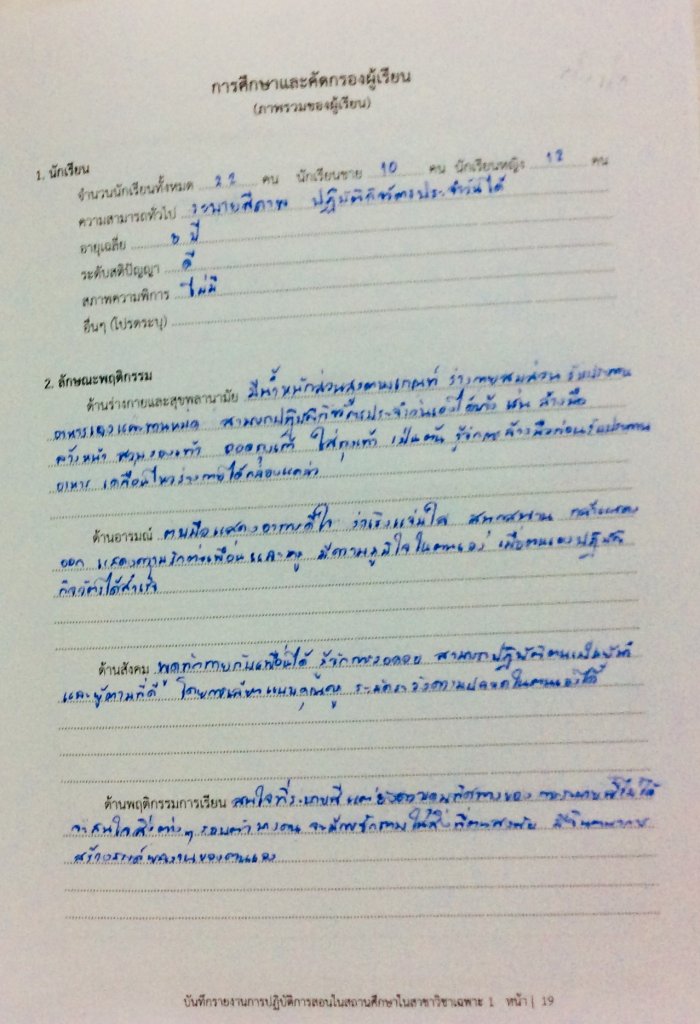 การศึกษาและคัดกรองผู้เรียน
(ภาพรวมของผู้เรียน)
1. นักเรียน
จำนวนนักเรียนทั้งหมด 22 คน นักเรียนชาย 10 คน นักเรียนหญิง 12 คน
ความสามารถทั่วไป ระบายสีภาพ ปฏิบัติกิจวัตรประจำวันได้
อายุเฉลี่ย 3 ปี
ระดับสติปัญญา ดี
สภาพความพิการ ไม่มี
อื่นๆ (โปรดระบุ)
2. ลักษณะพฤติกรรม
ด้านร่างกายและสุขพลานามัย มีน้ำหนักส่วนสูงตามเกณฑ์ ร่างกายสมส่วน รับประทาน
อาหารเองและทานหมด สามารถปฏิบัติกิจวัตรประจำวันเองได้แล้ว เช่น ล้างมือ
ล้างหน้า สวมรองเท้า ถอดถุงเท้า ใส่ถุงเท้า เป็นต้น รู้จักการล้างมือก่อนรับประทาน
อาหาร เคลื่อนไหวร่างกายได้คล่องแคล่ว
ด้านอารมณ์ แสดงอาการดีใจ ร่าเริงแจ่มใส สนุกสนาน กล้าแสดง
ออก แสดงความรักต่อเพื่อนและครู มีความภูมิใจในตนเอง เมื่อตนเองปฏิบัติ
กิจวัตรได้สำเร็จ
ด้านสังคม พูดทักทายกับเพื่อนได้ รู้จักการรอคอย สามารถปฏิบัติตนเป็นผู้นำ
และผู้ตามที่ดี โดยการเล่น ระมัดระวังความปลอดภัยในตนเองได้
ด้านพฤติกรรมการเรียน สนใจที่ระบายสี แต่ยังควบคุมทิศทางของการระบายสีไม่ได้
จะสนใจสิ่งต่างๆ รอบตัว บางคนจะมักซักถามในสิ่งที่ตนสงสัย มีจินตนาการ
สร้างสรรค์ผลงานของตนเอง
บันทึกรายงานการปฏิบัติการสอนในสถานศึกษาในสาขาวิชาเฉพาะ 1 หน้า | 19